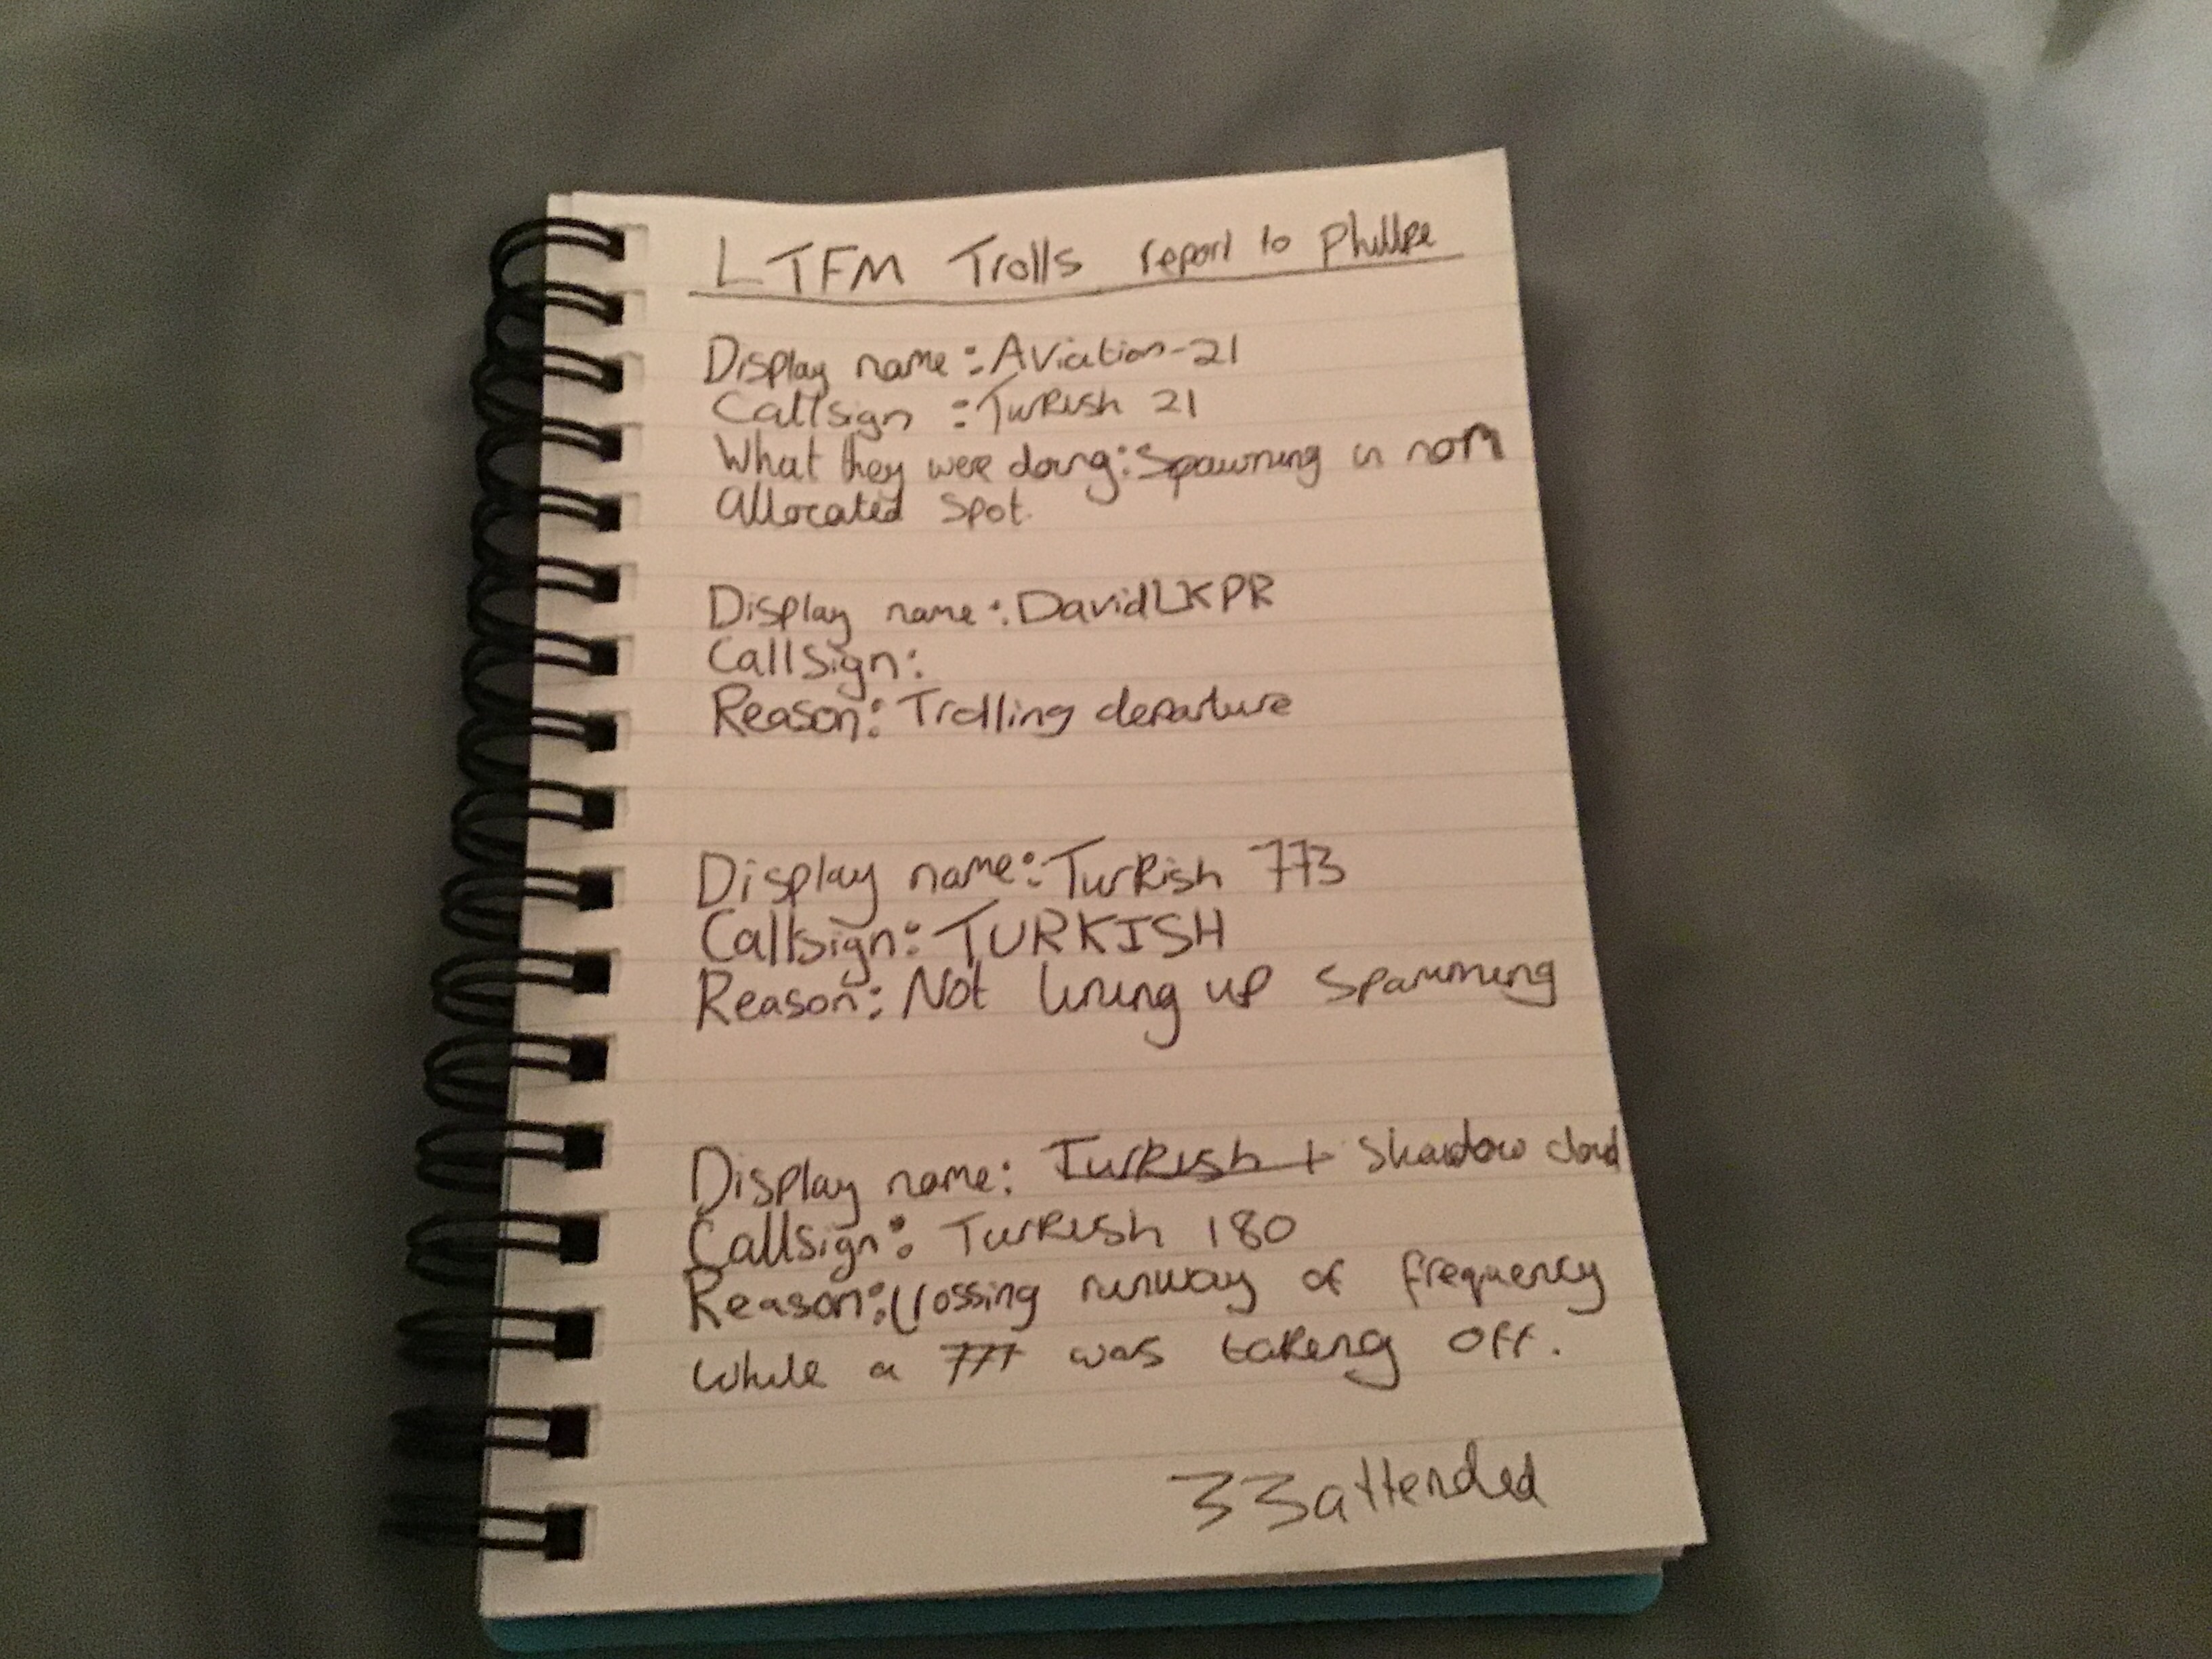 LTFM Trolls report to Phillpe
Display name: Aviation-21
Callsign: Turkish 21
What they were doing: Spawning in non
allocated spot.
Display name: DavidLKPR
Callsign:
Reason: Trolling departure
Display name: Turkish 773
Callsign: TURKISH
Reason: Not lining up spamming
Display name: Turkish + Shadow cloud
Callsign: Turkish 180
Reason: Crossing runway of frequency
while a 777 was taking off.
33 attended